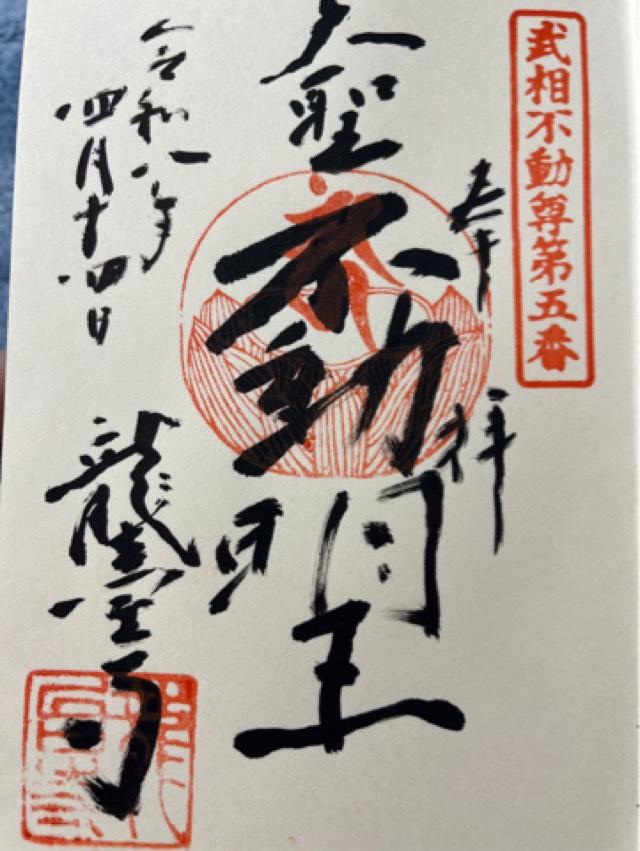 武相不動尊第五番
奉拝
大聖不動明王
令和八年
四月十四日
龍雲寺